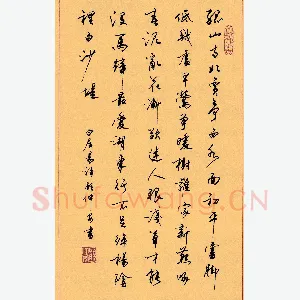 孤山寺北賈亭西水面初平雲脚
低幾處早鶯爭暖樹誰家新燕啄
春泥亂花漸欲迷人眼淺草才能
沒馬蹄最愛湖東行不足綠楊陰
裡白沙堤
白居易詩 書
Shufawang.CN